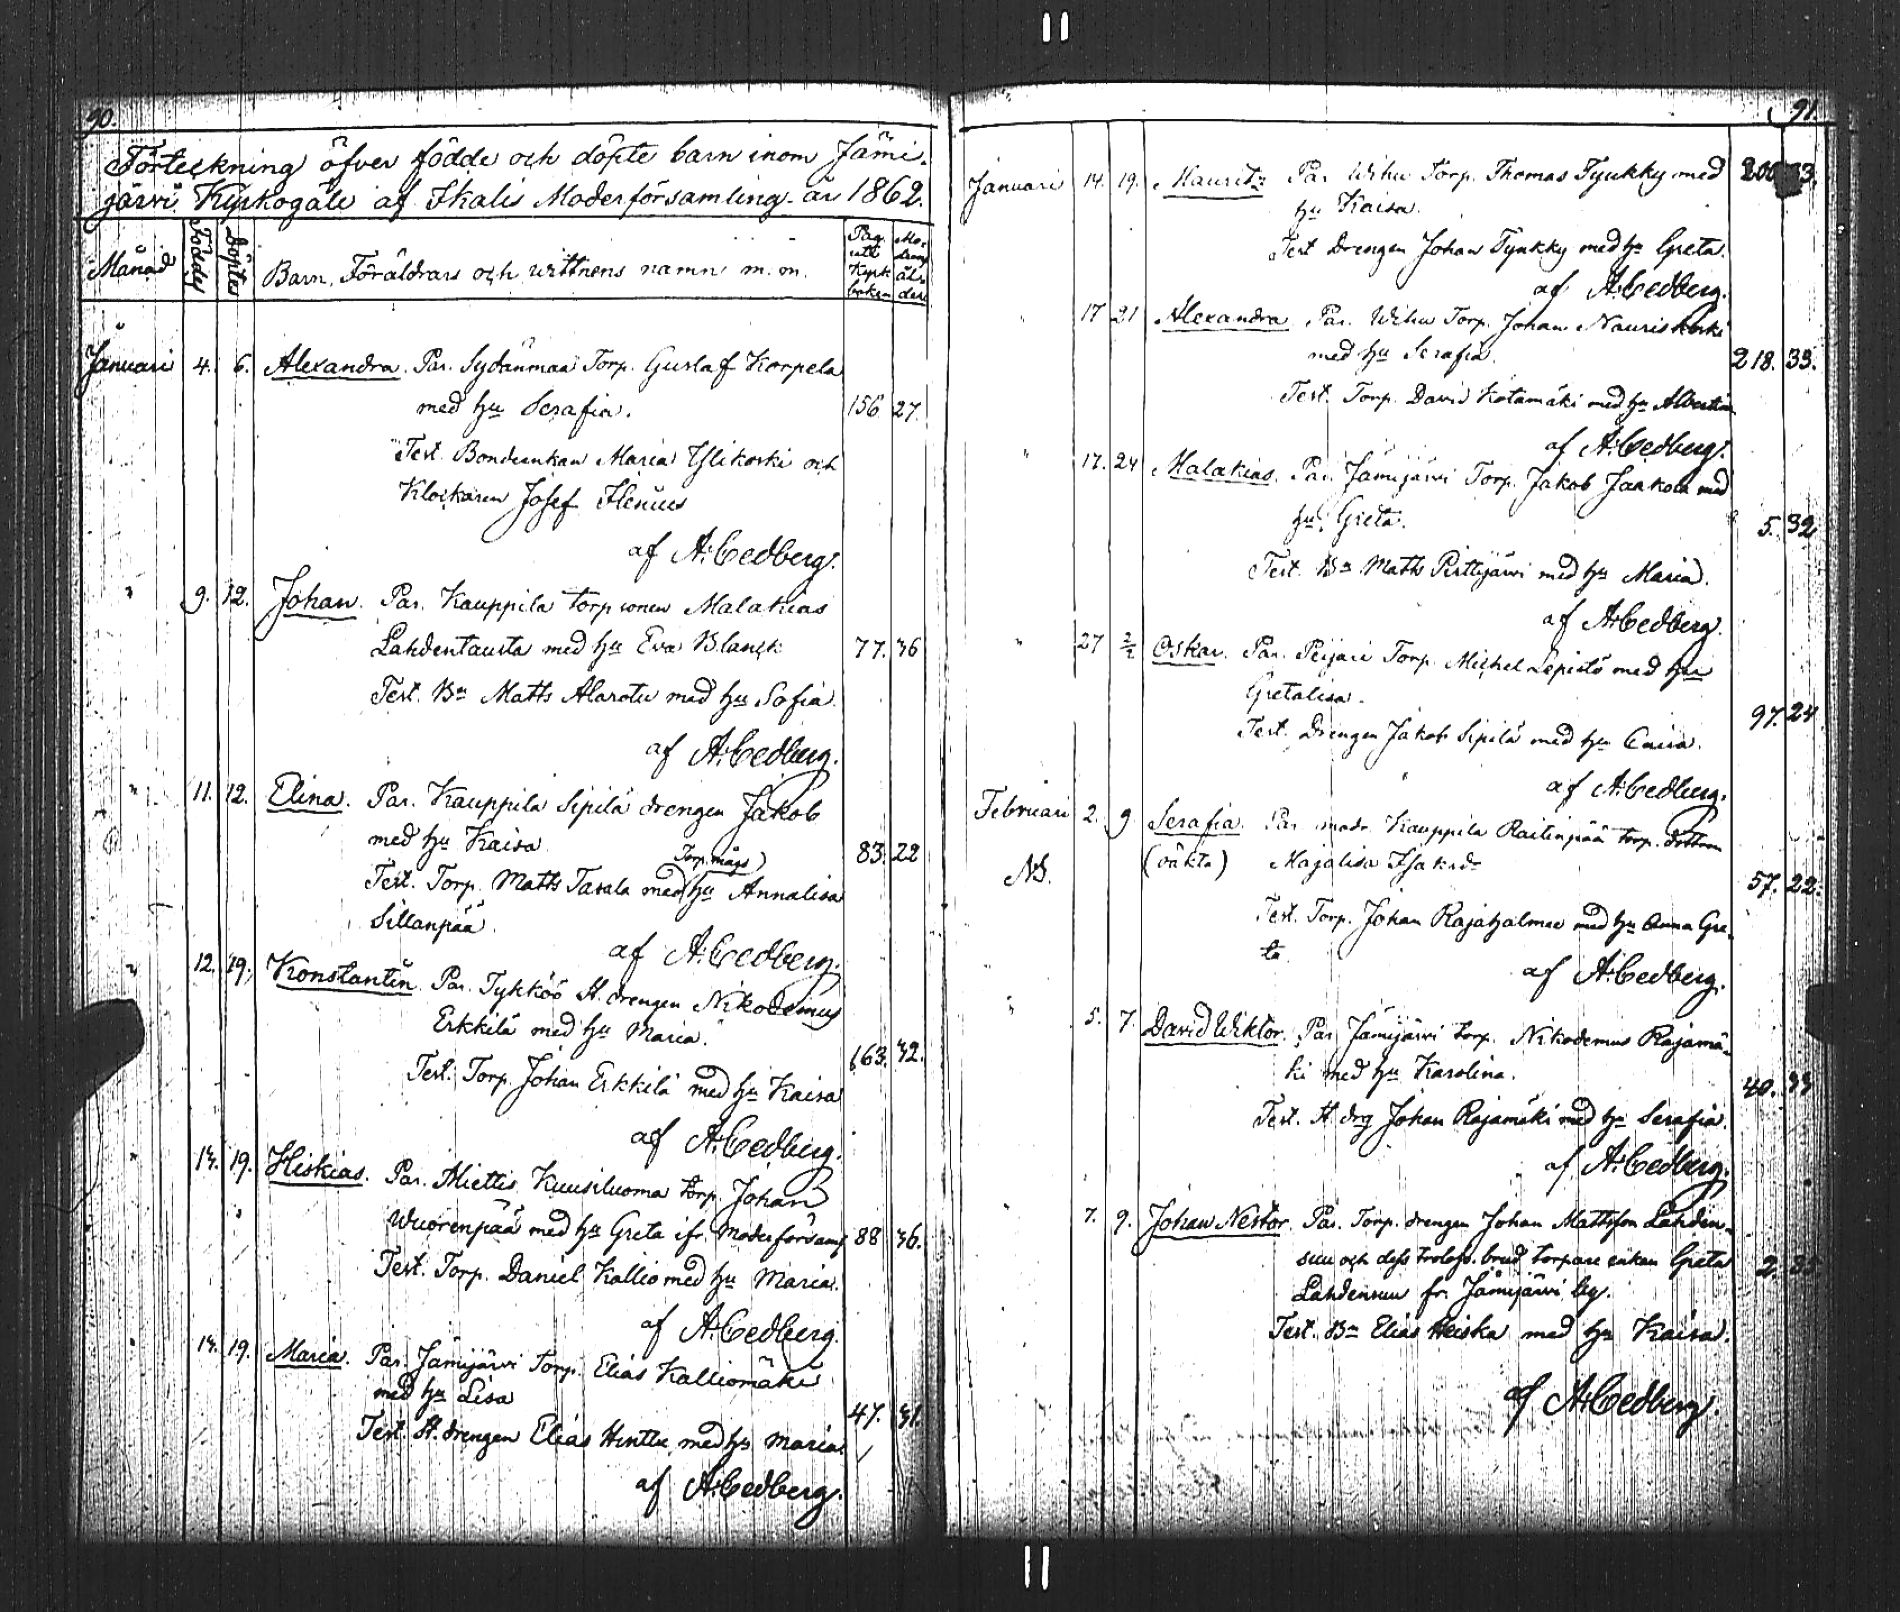 11
90.
Förteckning öfver födde och döpte barn inom Jämi-
järvi Kyrkogäle af Ikalis Moderförsamling år 1862.
Månad Födde Döptes Barn, Föräldrars och wittnens namn m. m. Pag. uti Kyrk boken Mo- drens ål- der
Januari 4. 6. Alexandra. Par. Sydänmaa Torp. Gustaf Korpela
med hu Serafia. 156 27.
Test. Bondeenkan Maria Ylikoski och
Klockaren Josef Ilenius
af A. Cedberg.
" 9. 12. Johan. Par. Kauppila torp sonen Malakias
Lahdentausta med hu Eva Blanck 77. 36
Test. Bn Matts Alarotu med hu Sofia
af A. Cedberg.
" 11. 12. Elina. Par. Kauppila Sipilä drengen Jakob
med hu Kaisa 83. 22
Torp. mågs)
Test. Torp. Matts Tasala med hu Annalisa
Sillanpää.
af A. Cedberg.
" 12. 19. Konstantin. Par. Tykköö St. drengen Nikodemus
Erkkilä med hu Maria. 163. 32.
Test. Torp. Johan Erkkilä med hu Kaisa
af A. Cedberg.
" 14. 19. Hiskias. Par. Miettis Kuusiluoma torp. Johan
Wuorenpää med hu Greta ifr. Moderförsaml 88 36.
Test. Torp. Daniel Kallio med hu Maria.
af A. Cedberg.
" 14. 19. Maria. Par. Jämijärvi Torp. Elias Kalliomäki
med hu Lisa 47. 31.
Test. St. drengen Elias Hinttu med hu Maria
af A. Cedberg.
91.
Januari 14. 19. Mauritz Par. Wihu Torp. Thomas Tynkky med 200 33.
hu Kaisa.
Test Drengen Johan Tynkky med hu Greta.
af A. Cedberg.
" 17 21 Alexandra Par. Wihu Torp. Johan Nauriskoski
med hu Serafia. 218. 33.
Test. Torp. David Kotamäki med hu Albertina
af A. Cedberg.
" 17. 24 Malakias. Par. Jämijärvi Torp. Jakob Jaakola med
hu Greta. 5. 32
Test. Bn Matts Perttijärvi med hu Maria.
af A. Cedberg.
" 27 2/2 Oskar. Par. Peijari Torp. Michel Lepistö med hu
Gretalisa. 97. 24
Test. Drengen Jakob Sipilä med hu Caisa.
af A. Cedberg.
Februari 2. 9 Serafia. Par. modr. Kauppila Raitinpää torp. dottren
NB. (oäkta) Majalisa Isaksdr 57. 22.
Test. Torp. Johan Rajahalme med hu Anna Gre-
ta.
af A. Cedberg.
" 5. 7. David Wiktor. Par. Jämijärvi torp. Nikodemus Rajamä-
ki med hu Karolina. 40. 33
Test. St. drg Johan Rajamäki med hu Serafia.
af A. Cedberg.
" 7. 9. Johan Nestor. Par. Torp. drengen Johan Mattsson Lahden-
suu och dess trolof. brud torpare enkan Greta 2.
Lahdensuu fr. Jämijärvi by.
Test. Bn Elias Heiska med hu Kaisa.
af A. Cedberg.
11